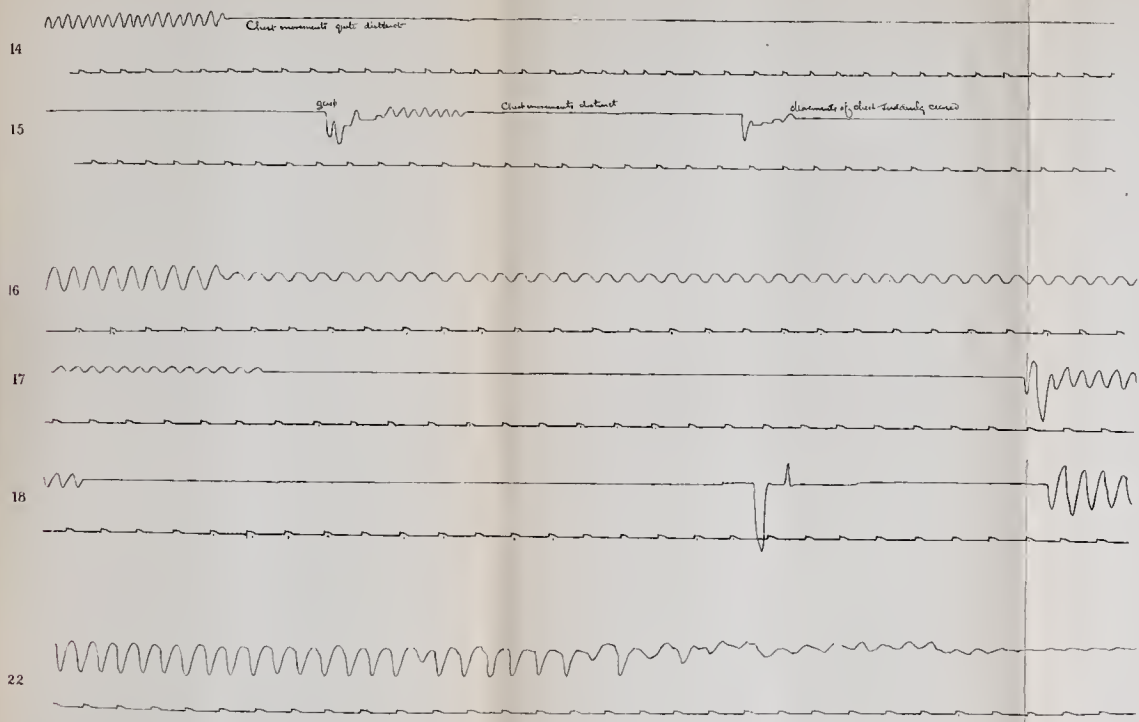 Chest movements quite distinct
14
gasp
Chest movements distinct
movements of chest suddenly ceased
15
16
17
18
22